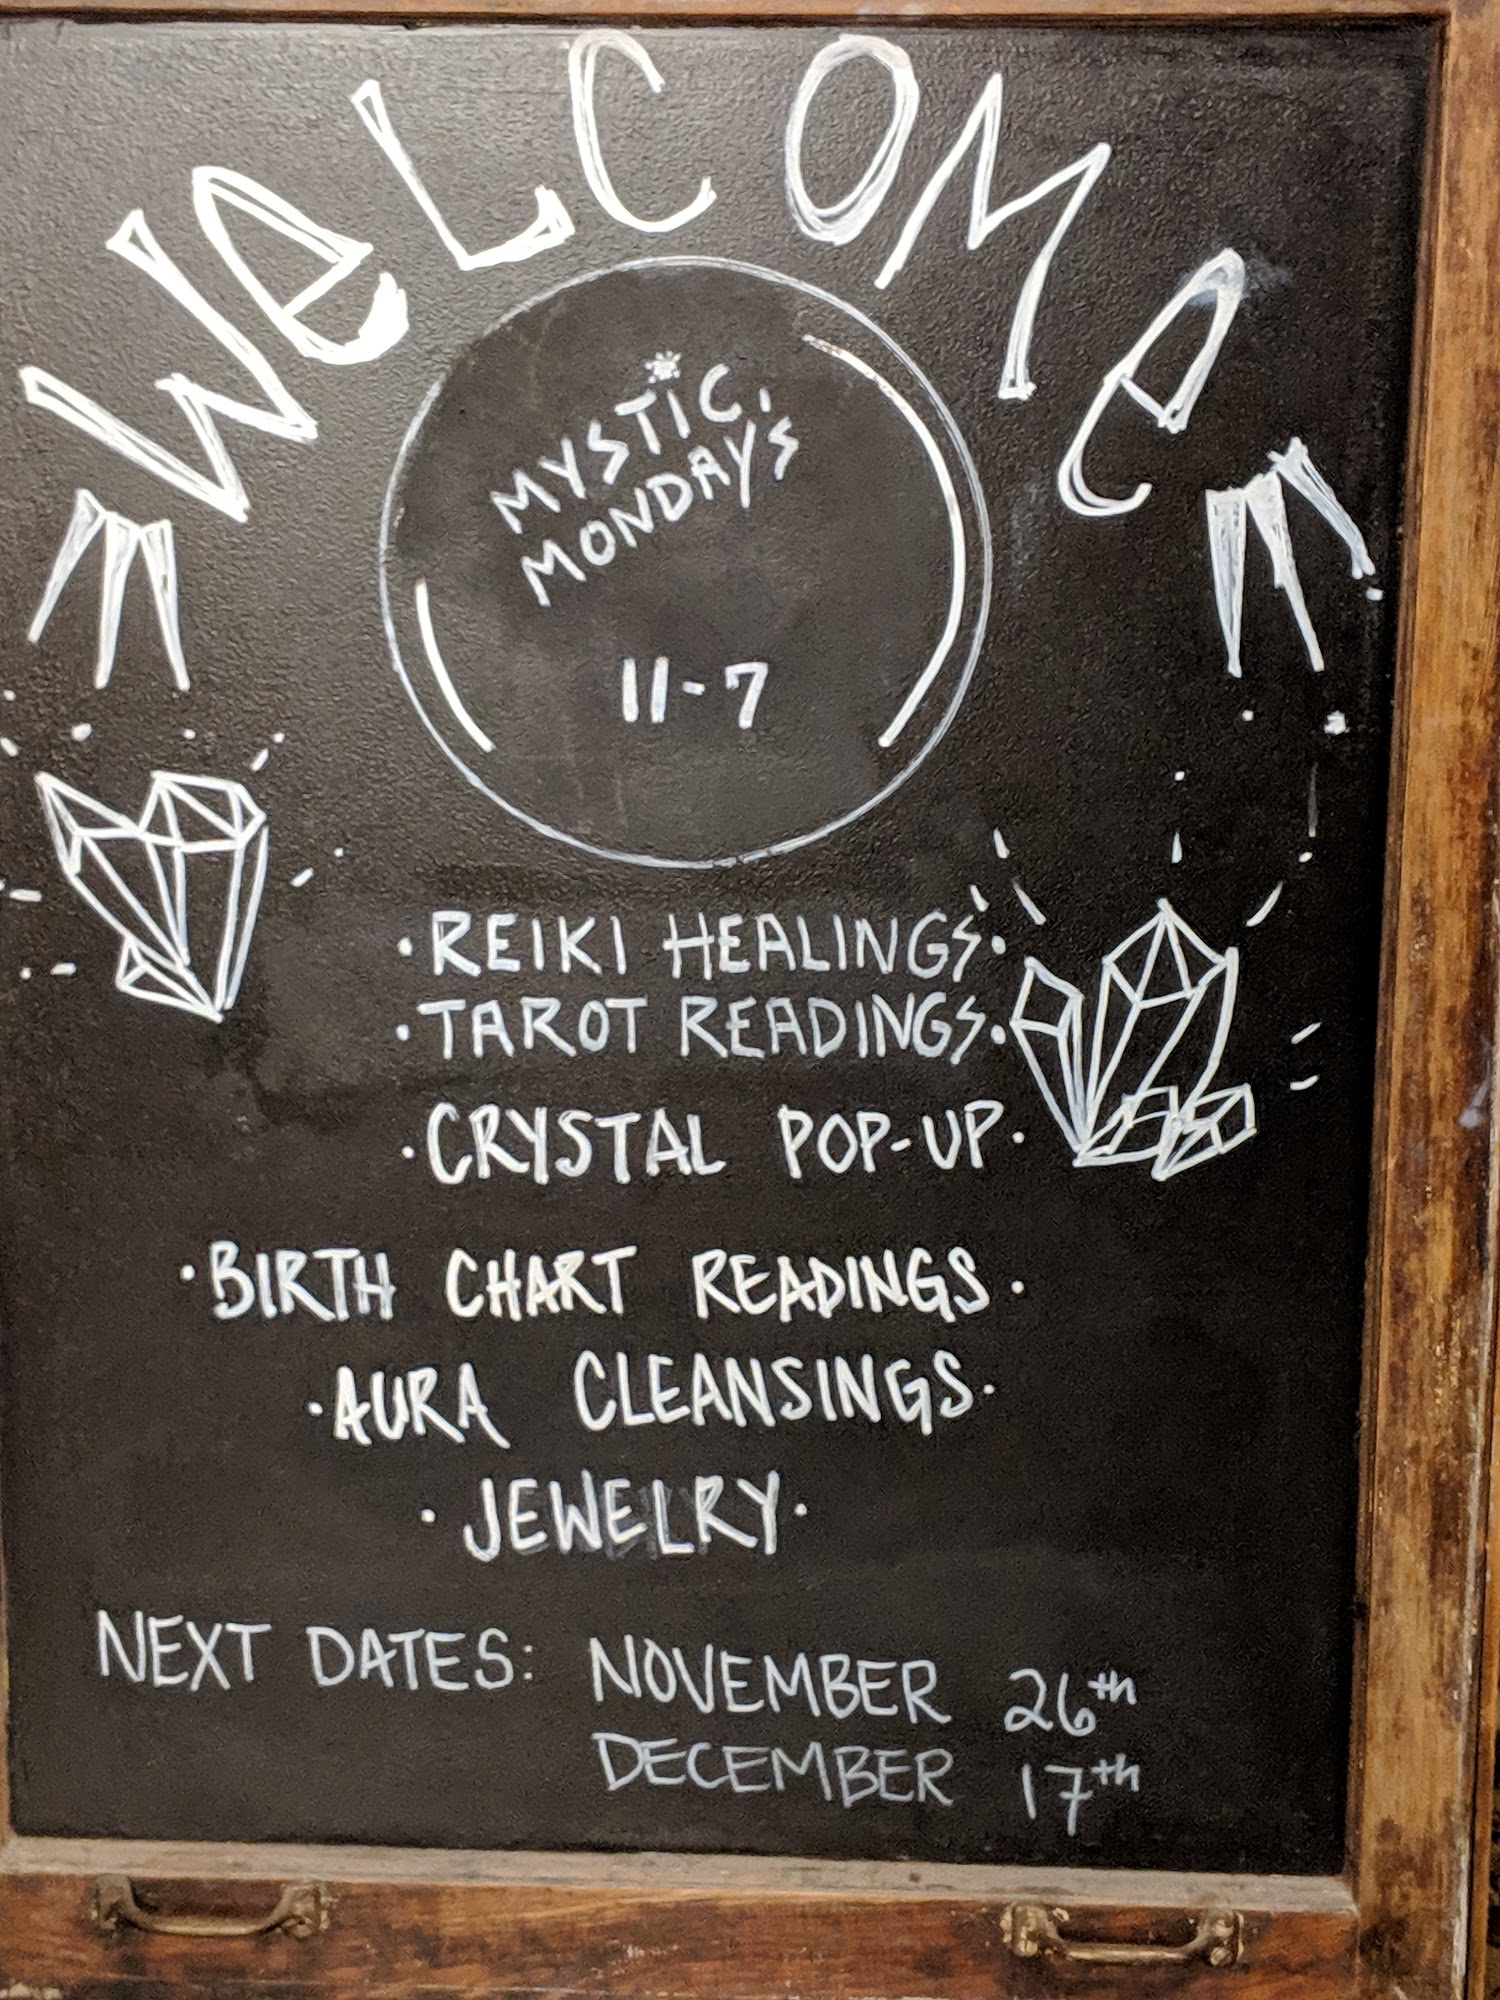 WELCOME
MYSTIC.
MONDAYS
11-7
·REIKI HEALINGS·
·TAROT READINGS·
·CRYSTAL POP-UP·
·BIRTH CHART READINGS·
·AURA CLEANSINGS·
·JEWELRY·
NEXT DATES: NOVEMBER 26th
DECEMBER 17th